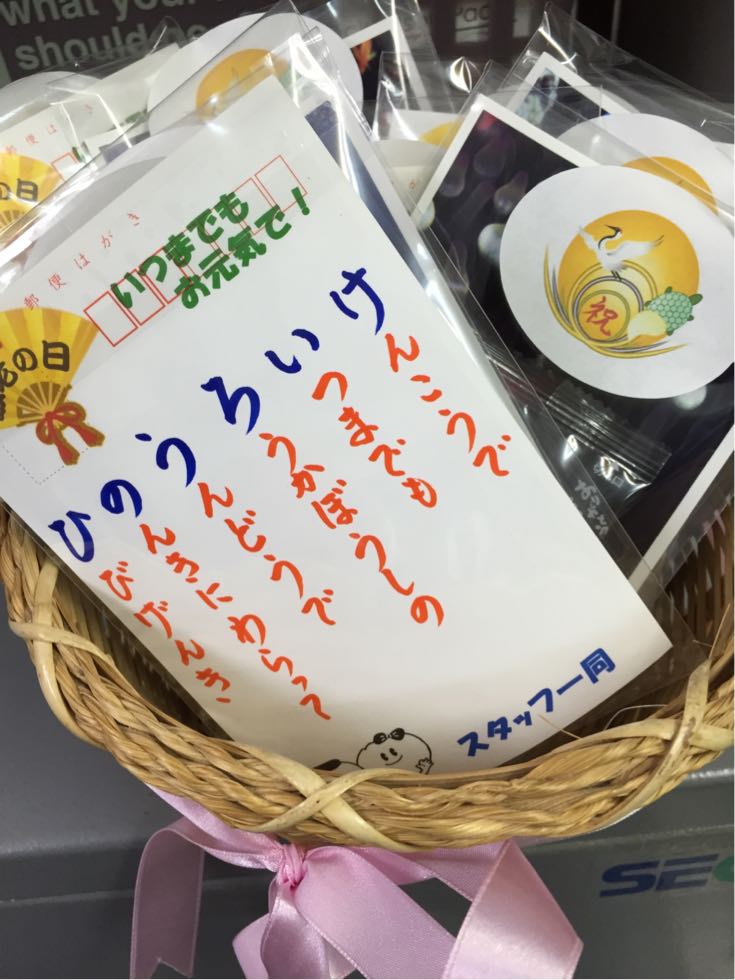 what your
should
郵便はがき
いつまでも
お元気で！
の日
けんこうで
いつまでも
ろうかぼうしの
うんどうで
のんきにわらって
ひびげんき
スタッフ一同
祝
の日